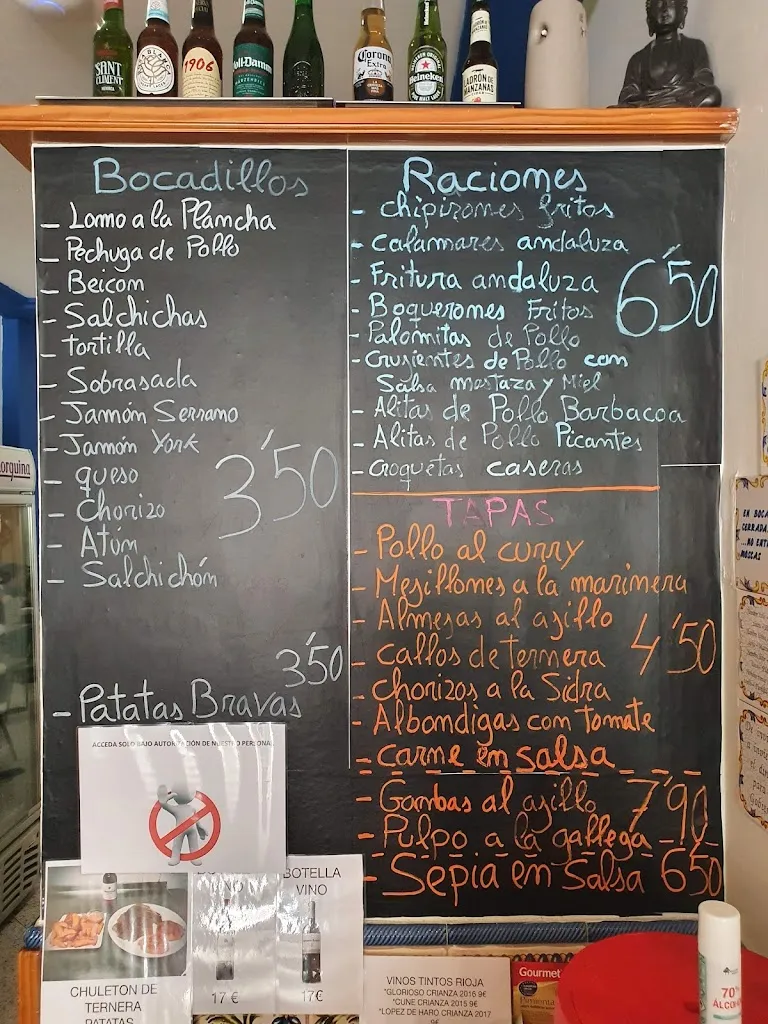 SANT CLIMENT
1906
Voll-Damm
Corona
Extra
Heineken
LADRÓN DE
MANZANAS
Bocadillos
- Lomo a la Plancha
- Pechuga de Pollo
- Beicom
- Salchichas
- tortilla
- Sobrasada
- Jamón Serrano
- Jamón York
- queso
- Chorizo
- Atún
- Salchichón
3'50
3'50
- Patatas Bravas
Raciones
- chipirones fritos
- calamares andaluza
- Fritura andaluza
- Boquerones Fritos
- Palomitas de Pollo
- Crujientes de Pollo con
Salsa mostaza y Miel
- Alitas de Pollo Barbacoa
- Alitas de Pollo Picantes
- croquetas caseras
6'50
TAPAS
- Pollo al curry
- Mejillones a la marinera
- Almejas al ajillo
- callos de ternera
- chorizos a la Sidra
- Albondigas con tomate
- carne en salsa
4'50
- Gambas al ajillo 7'90
- Pulpo a la gallega
- Sepia en Salsa 6'50
ACCEDA SOLO BAJO AUTORIZACIÓN DE NUESTRO PERSONAL
CHULETON DE
TERNERA
PATATAS
17 €
BOTELLA
VINO
17€
VINOS TINTOS RIOJA
*GLORIOSO CRIANZA 2016 9€
*CUNE CRIANZA 2015 9€
*LOPEZ DE HARO CRIANZA 2017
9€
Gourmet
Pimienta
70°
ALCOHOL
EN BOCA
CERRADA
...NO ENTRAN
MOSCAS